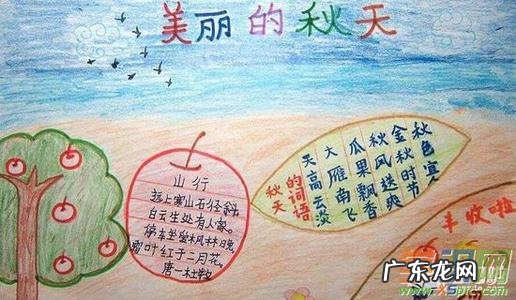 美丽的秋天
山行
远上寒山石径斜,
白云生处有人家。
停车坐爱枫林晚,
霜叶红于二月花。
唐—杜牧
秋天
的词语
天高云淡
大雁南飞
瓜果飘香
秋风送爽
金秋时节
秋色宜
丰收啦
广东龙网